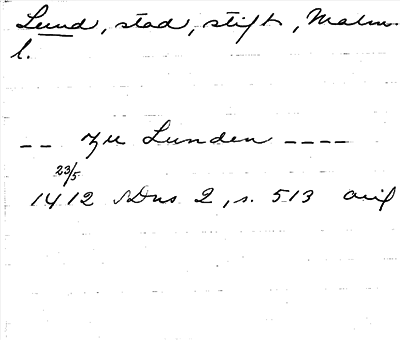 Lund, stad, stift, Malm.
l.
-- zu Lunden ----
23/5
1412 SDns 2, s. 513 avig